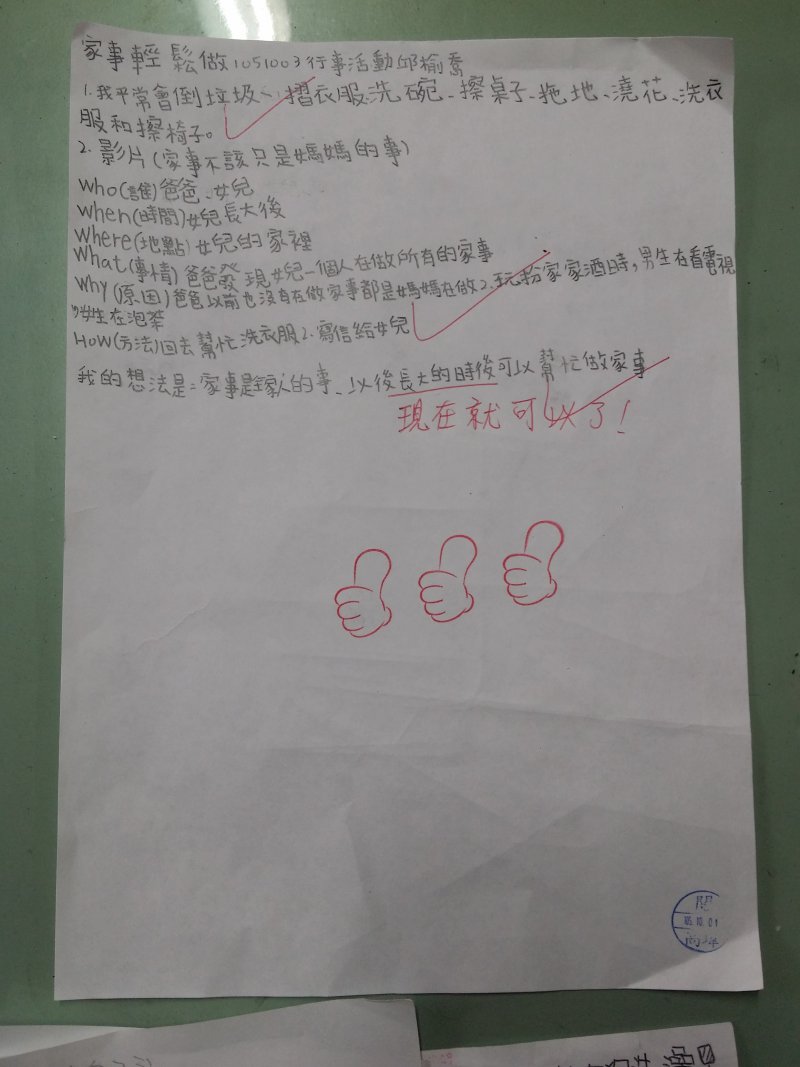 家事輕鬆做1051003行事活動邱榆喬
1.我平常會倒垃圾、摺衣服、洗碗、擦桌子、拖地、澆花、洗衣
服和擦椅子。
2.影片(家事不該只是媽媽的事)
Who(誰)爸爸、女兒
When(時間)女兒長大後
Where(地點)女兒的家裡
What(事情)爸爸發現女兒一個人在做所有的家事
Why(原因)爸爸以前也沒有在做家事都是媽媽在做2.玩粉家家酒時,男生在看電視
女生在泡茶
How(方法)回去幫忙洗衣服2.寫信給女兒
我的想法是:家事是家人的事、以後長大的時後可以幫忙做家事
現在就可以了!
閱
10.01